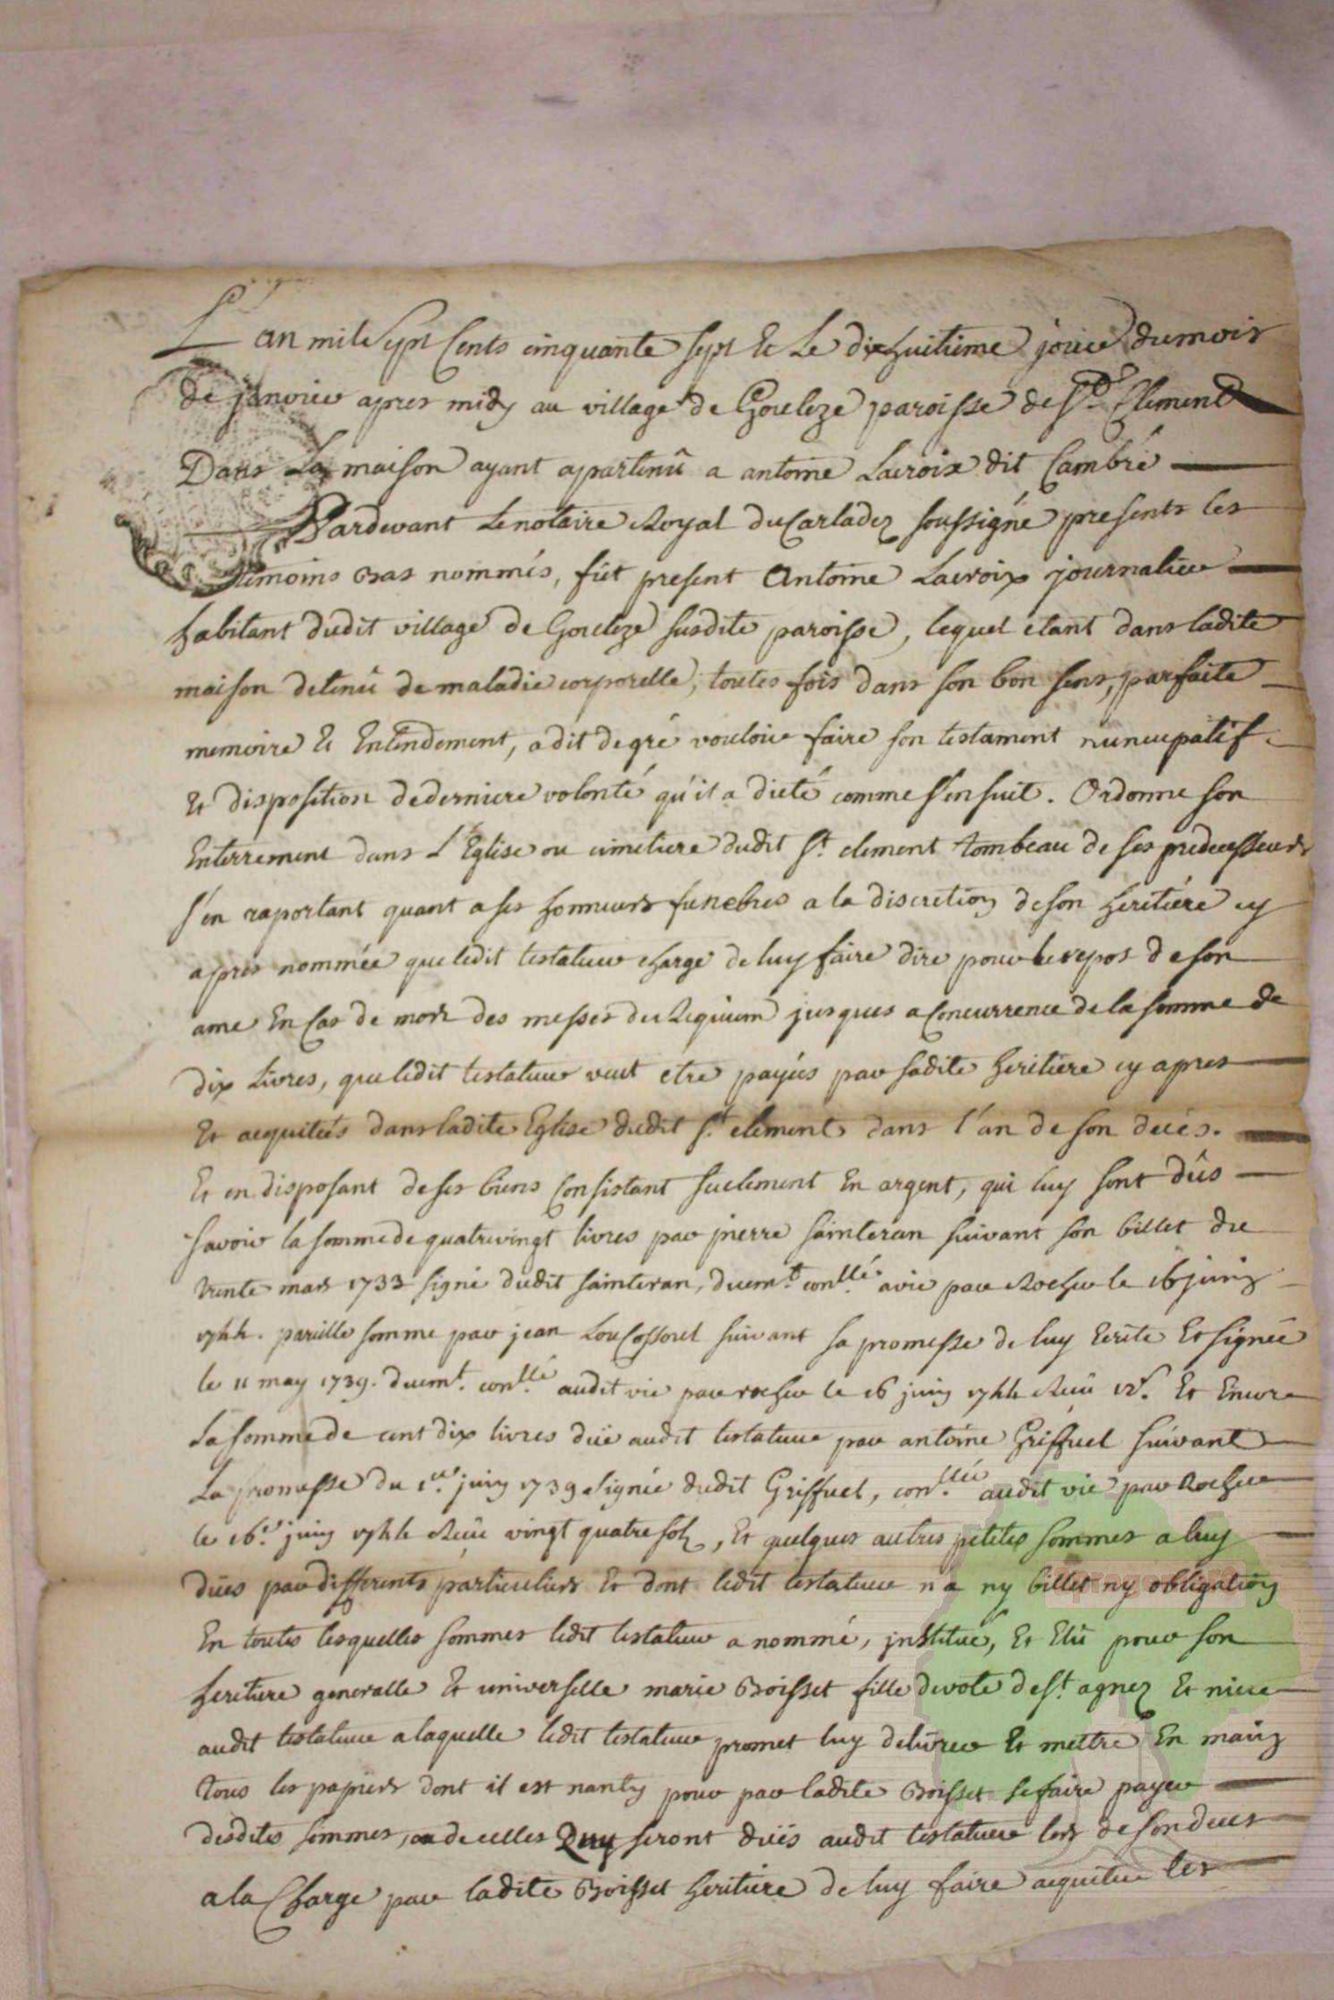 L'an mil sept cents cinquante sept et le dixhuitieme jour du mois
de janvier apres midy au village de Gouleze paroisse de St. Clement
Dans la maison ayant apartenû a antoine Lacroix dit Cambré
Pardevant le notaire Royal du Carladez soussigné presents les
temoins bas nommés, fût present Antoine Lacroix journalier
habitant dudit village de Gouleze susdite paroisse, lequel étant dans ladite
maison detenû de maladie corporelle, toutes fois dans son bon sens, parfaite
memoire et Entendement, a dit de gré vouloir faire son testament nuncupatif
et disposition de derniere volonté qu'il a dicté comme s'en suit. Ordonne son
Enterrement dans L'Eglise ou cimetiere dudit St. clement tombeau de ses predecesseurs
s'en raportant quant a ses honneurs funebres a la discretion de son heritiére cy
aprés nommée que ledit testateur charge de luy faire dire pour le repos de son
ame En Cas de mort des messes de Requiem jusques a Concurrence de la somme de
dix Livres, que ledit testateur veut etre payés par sadite heritiere cy apres
Et acquitées dans ladite Eglise dudit St. clement dans l'an de son decés.
Et en disposant de ses biens Consistant seulement En argent, qui luy sont dûs
savoir la somme de quatrevingt livres par pierre sainteran suivant son billet du
trente mars 1733 signé dudit sainteran, duemt. conllé. a vic par Rocher le 16 juin
1744. pareille somme par jean suivant sa promesse de luy Ecrite Et signée
le 11 may 1739. duemt. conllé. audit vic par rocher le 16 juin 1744 Reçû 12s. Et Encore
La somme de cent dix livres düe audit testateur par antoine Griffuel suivant
La promesse du 1er. juin 1739 signée dudit Griffuel, conllée. audit vic par Rocher
le 16e. juin 1744 Reçû vingt quatre sols, Et quelques autres petites sommes a luy
dües par differents particuliers Et dont ledit testateur n'a ny billet ny obligation
En toutes lesquelles sommes ledit testateur a nommé, institué, Et Elû pour son
heritiere generalle Et universelle marie Boisset fille devote de St. agnez Et niece
audit testateur a laquelle ledit testateur promet luy delivrer Et mettre En main
tous les papiers dont il est nanty pour par ladite Boisset se faire payer
desdites sommes, ou de celles Quy seront düés audit testateur lors de son deces
a la Charge par ladite Boisset heritiere de luy faire acquiter les